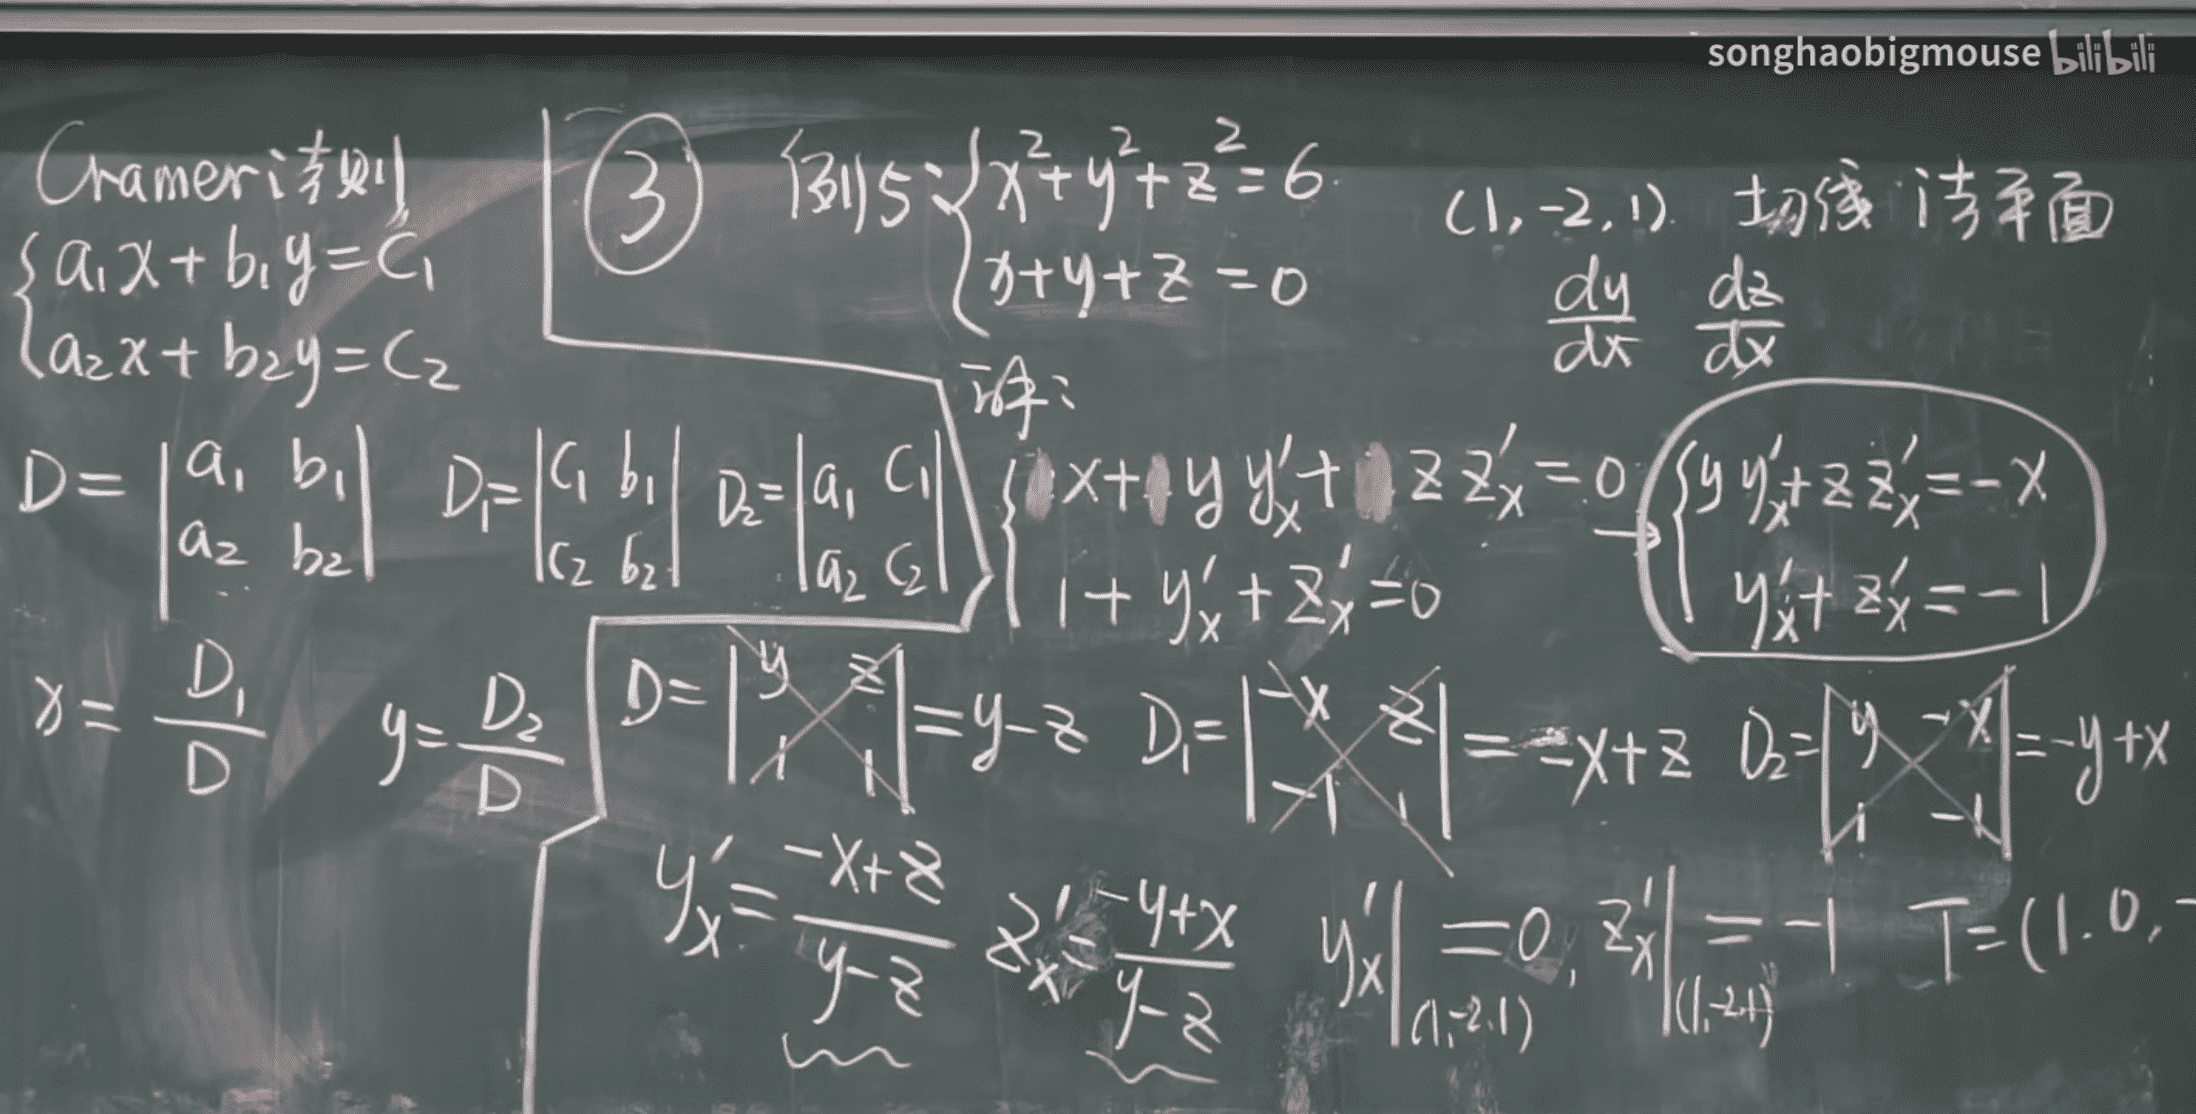 songhaobigmouse bilibili
Cramer法则
{a₁x+b₁y=C₁
a₂x+b₂y=C₂
D=|a₁ b₁|
|a₂ b₂|
D₁=|C₁ b₁|
|C₂ b₂|
D₂=|a₁ C₁|
|a₂ C₂|
x=D₁/D
y=D₂/D
③ 例5:{x²+y²+z²=6
x+y+z=0
(1,-2,1). 切线 法平面
dy/dx dz/dx
解:
{x+yy'ₓ+zz'ₓ=0
1+y'ₓ+z'ₓ=0
→{yy'ₓ+zz'ₓ=-x
y'ₓ+z'ₓ=-1
D=|y z|
|1 1|=y-z
D₁=|-x z|
|-1 1|=-x+z
D₂=|y -x|
|1 -1|=-y+x
y'ₓ=(-x+z)/(y-z)
z'ₓ=(-y+x)/(y-z)
y'ₓ|(1,-2,1)=0,
z'ₓ|(1,-2,1)=-1
T=(1.0,-